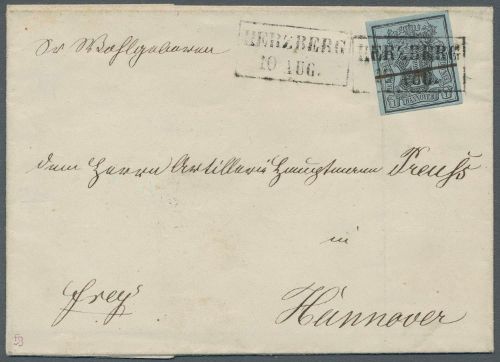 Sr Wohlgeboren
HERZBERG
10 AUG.
HERZBERG
AUG.
HANNOVER
dem Herrn Artillerie Hauptmann Preuss
in
Hannover
frey